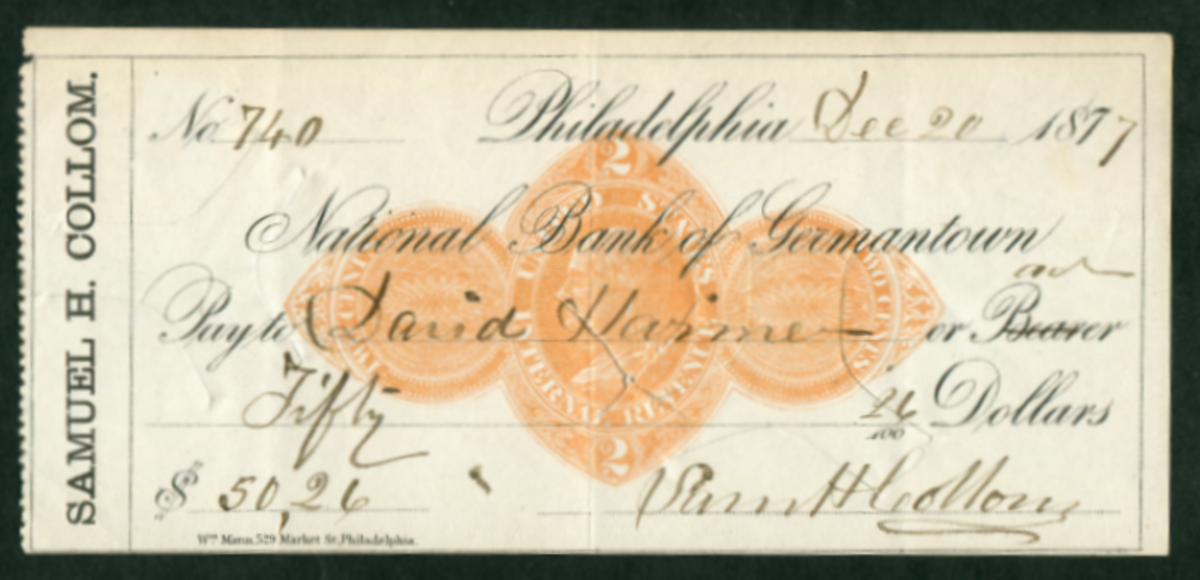 SAMUEL H. COLLOM.
No. 740 Philadelphia Dec 20 1877
2
UNITED STATES
National Bank of Germantown
Pay to David Harmer or Bearer
TWO CENTS
INTERNAL REVENUE
TWO CENTS
Fifty 26/100 Dollars
2
$ 50,26 Sam H Collom
Wm Mann, 529 Market St, Philadelphia.